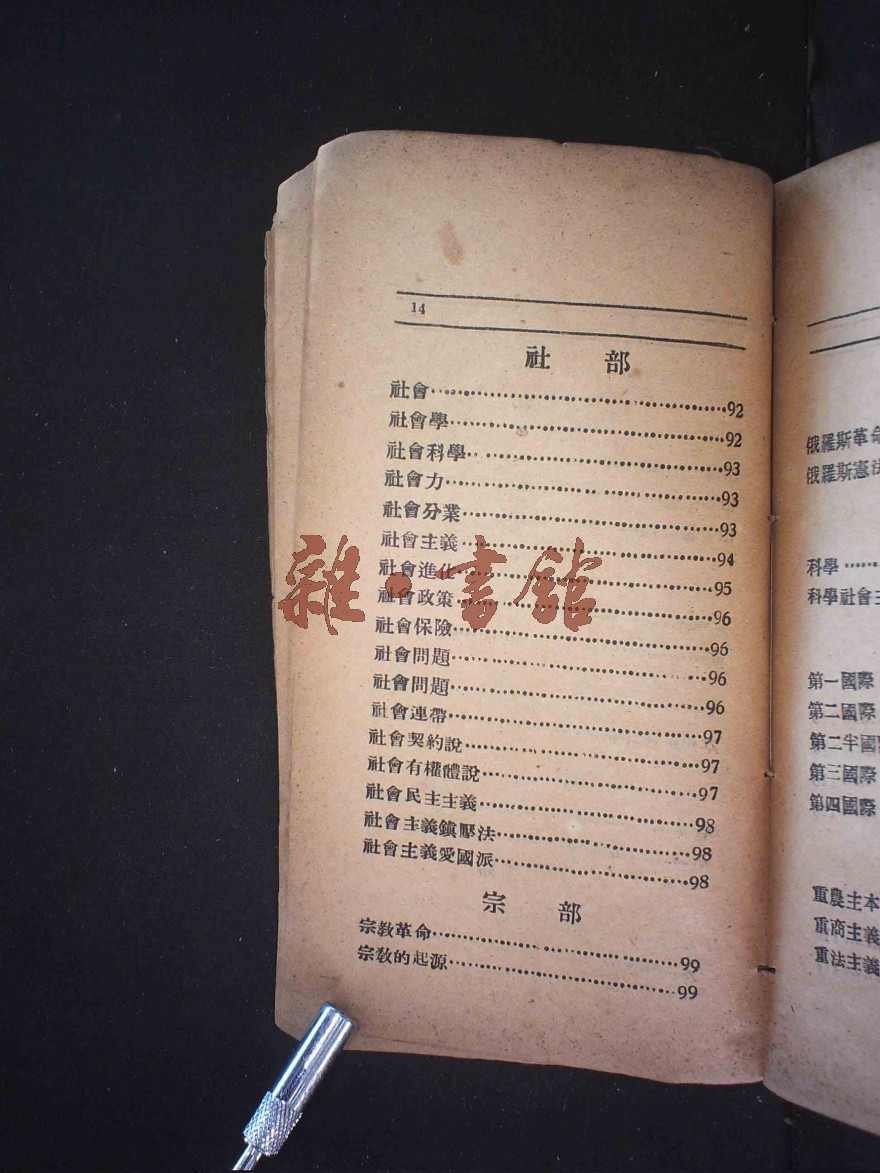 14
社 部
社會………92
社會學………92
社會科學………93
社會力………93
社會分業………93
社會主義………94
社會進化………95
社會政策………96
社會保險………96
社會問題………96
社會問題………96
社會連帶………97
社會契約說………97
社會有權體說………97
社會民主主義………98
社會主義鎮壓法………98
社會主義愛國派………98
宗 部
宗教革命………99
宗教的起源………99
雜·書館
俄羅斯革命
俄羅斯憲法
科學……
科學社會主
第一國際
第二國際
第二半國際
第三國際
第四國際
重農主本
重商主義
重法主義